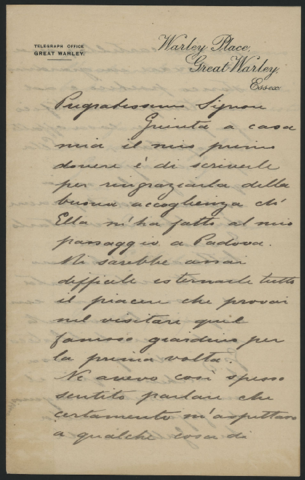 TELEGRAPH OFFICE
GREAT WARLEY.
Warley Place,
Great Warley,
Essex
Pregiatissimo Signore
Giunta a casa
mia il mio primo
dovere è di scriverle
per ringraziarla della
buona accoglienza ch'
Ella m'ha fatto al mio
passaggio a Padova.
Me sarebbe assai
difficile esternarle tutto
il piacere che provai
nel visitare quel
famoso giardino per
la prima volta.
Ne avevo così spesso
sentito parlare che
certamente m'aspettavo
a qualche cosa di